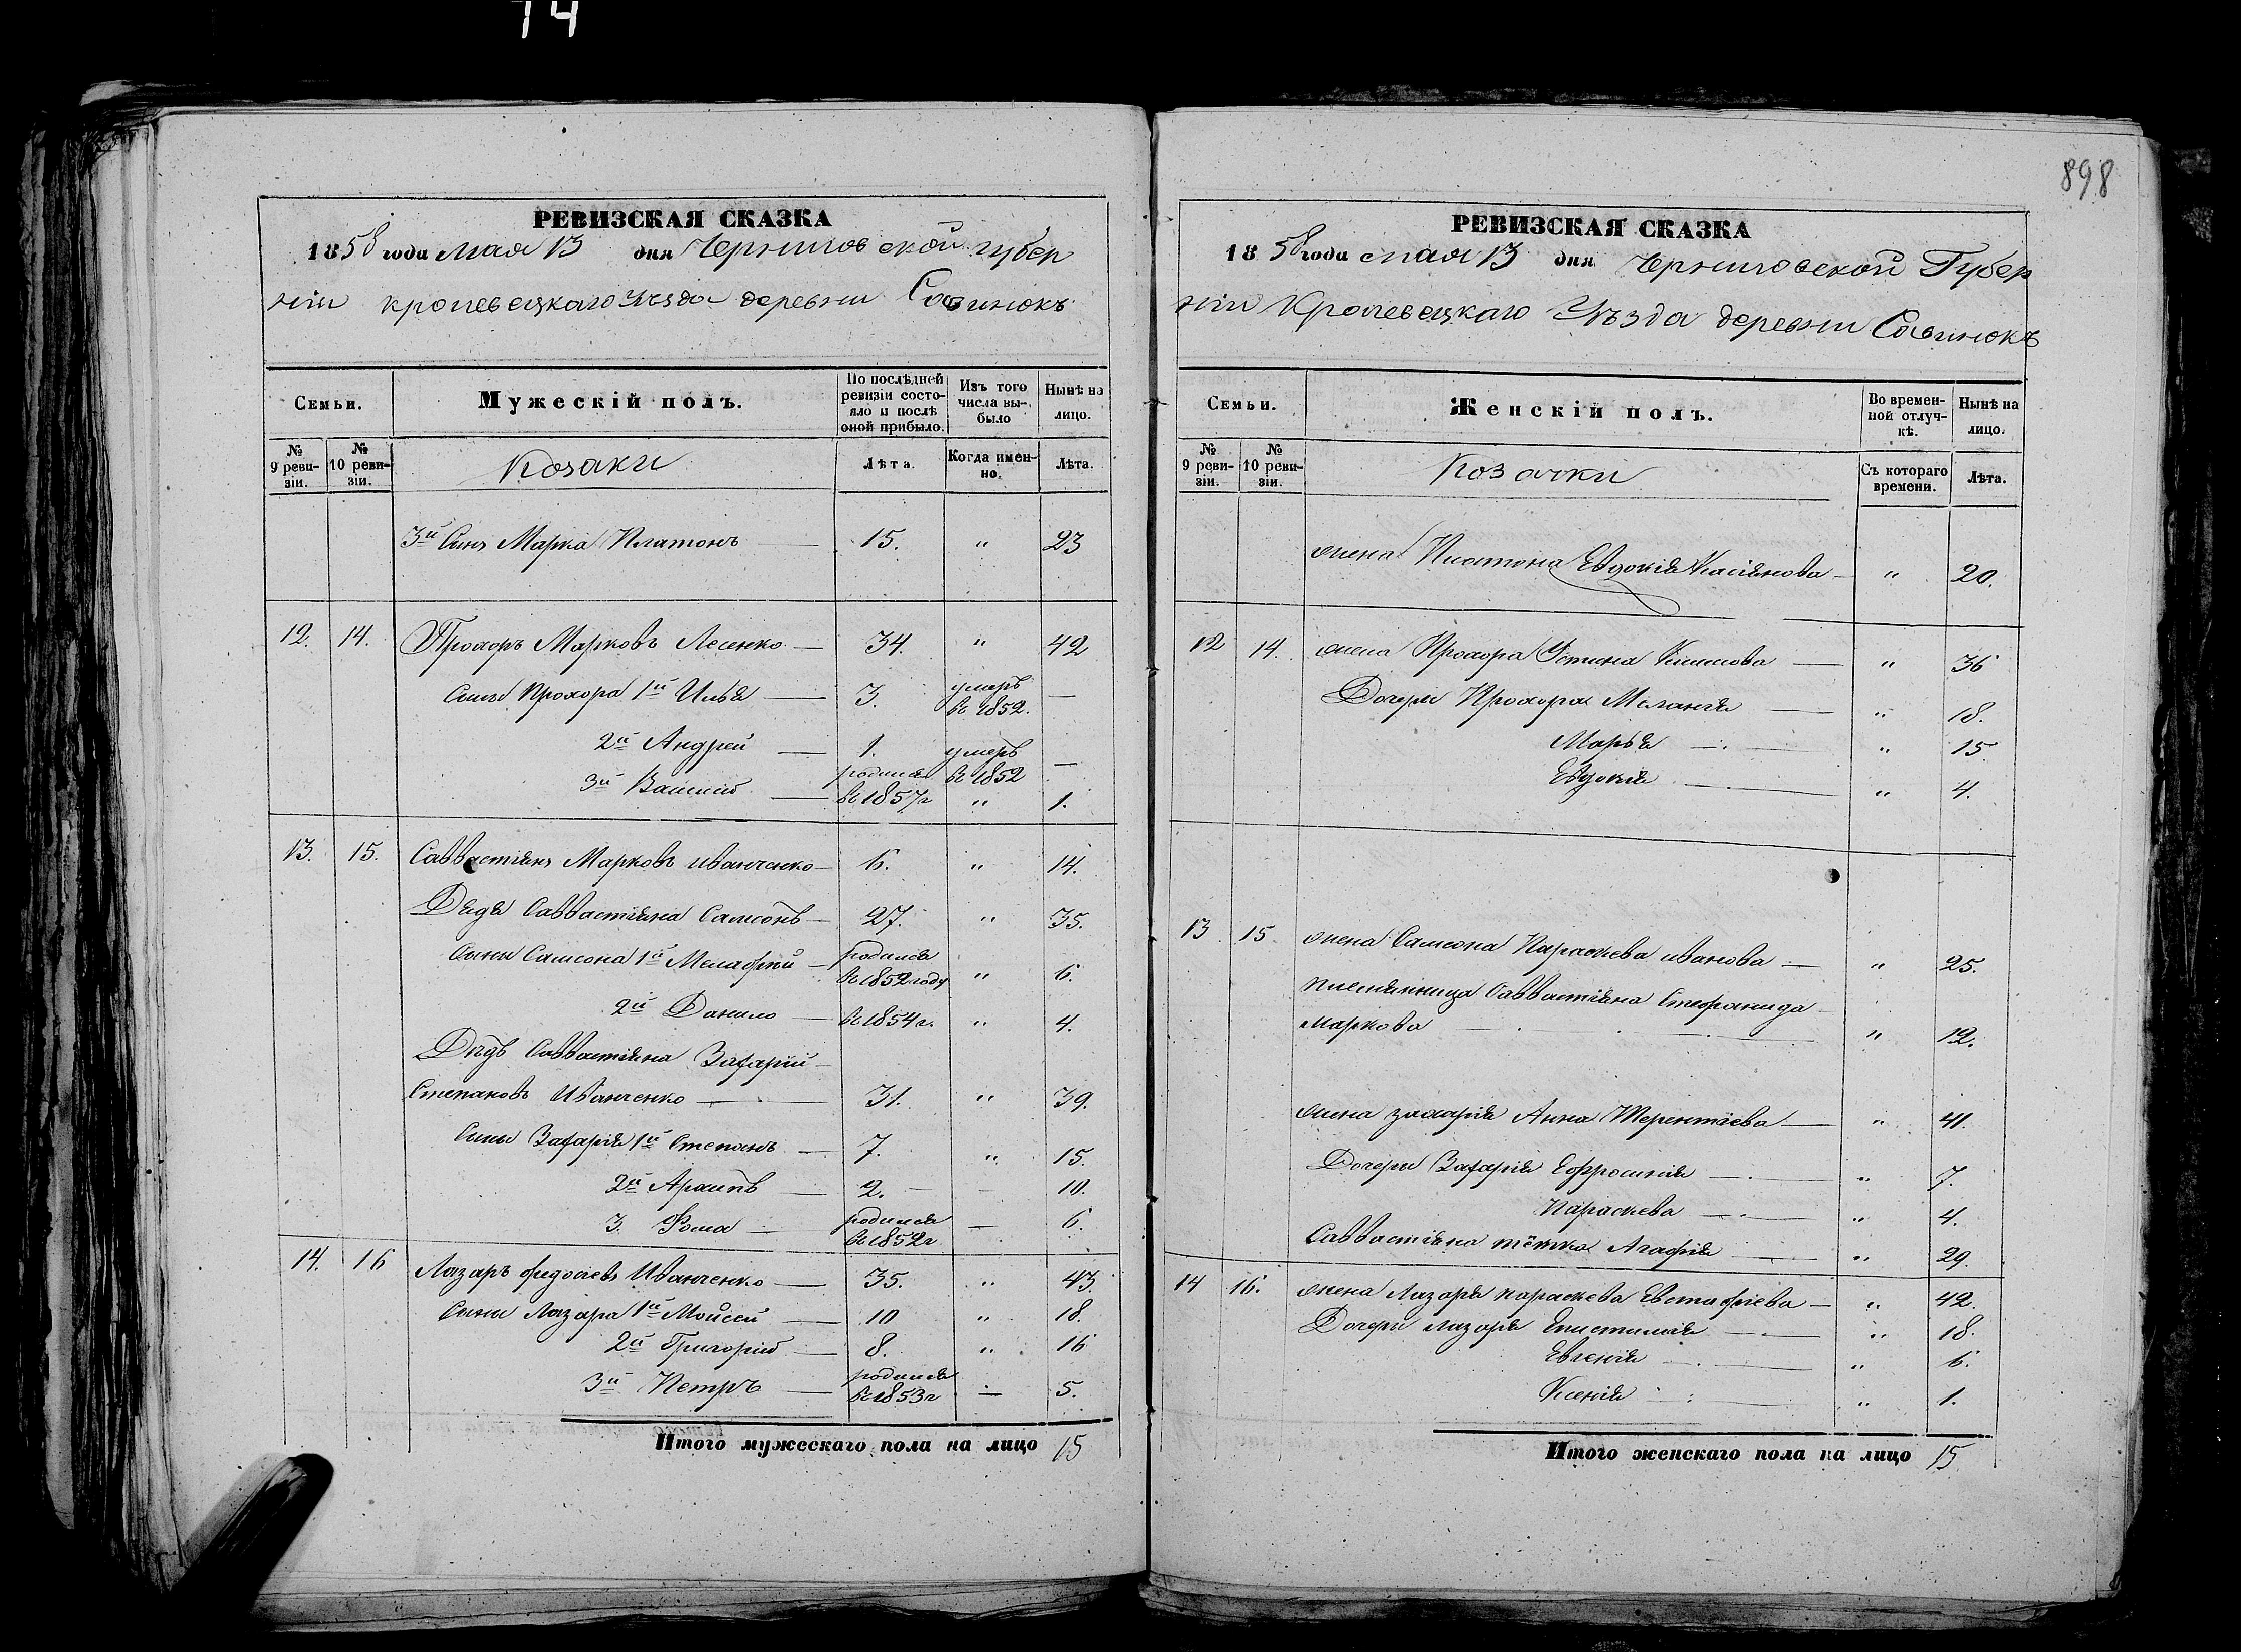 74
898
РЕВИЗСКАЯ СКАЗКА
1858 года мая 13 дня Черниговской губер
ніи кролевецкаго уѣзда деревни Савинокъ
Семьи.
Мужескій полъ.
По послѣдней ревизіи состояло и послѣ оной прибыло.
Изъ того числа выбыло
Нынѣ на лицо.
№ 9 ревизіи.
№ 10 ревизіи.
Козаки
Лѣта.
Когда именно.
Лѣта.
3й Сынъ Марка Платонъ — 15. " 23
12. 14. Прохоръ Марковъ Лесенко — 34. " 42
Сыны Прохора 1й Илья — 3. умеръ въ 1852. —
2й Андрей — 1. умеръ въ 1852 —
3й Василій — родился въ 1857г " 1.
13. 15. Саввастіянъ Марковъ иванченко — 6. " 14.
Дядя Саввастіяна Самсонъ — 27. " 35.
Сыны Самсона 1й — родился въ 1852 году " 6.
2й Данило — въ 1854г. " 4.
Дядь Саввастіяна Захарій —
Степановъ Иванченко — 31. " 39.
Сыны Захарія 1й Степанъ — 7. " 15.
2й Архипъ — 2. — — 10.
3. Фома — родился въ 1852г — 6.
14. 16 Лазаръ Иванченко — 35. " 43.
Сыны Лазара 1й Мойсей — 10 " 18.
2й Григорій — 8. " 16
3й Петръ — родился въ 1853г — 5.
Итого мужескаго пола на лицо 15
РЕВИЗСКАЯ СКАЗКА
1858 года мая 13 дня Черниговской Губер
ніи Кролевецкаго Уѣзда деревни Савинокъ
Семьи.
Женскій полъ.
Во временной отлучкѣ.
Нынѣ на лицо.
№ 9 ревизіи.
№ 10 ревизіи.
Козачки
Съ котораго времени.
Лѣта.
жена Платона Евдокія Касіянова — " 20.
12 14. жена Прохора Устина — " 36
Дочери Прохора Меланія — " 18.
Марья — " 15.
Евдокія — " 4.
13. 15. жена Самсона Параскева иванова — " 25.
племянница Саввастіяна Стефанида —
маркова — " 12.
жена захарія Анна Терентіева — " 41.
Дочеры Захарія Ефросинія — " 7.
Параскева — " 4.
Саввастіяна тётка Агафія — " 29.
14 16. жена Лазаря параскева Евстафіева — " 42.
Дочери лазаря Епистимія — " 18.
Евгенія — " 6.
Ксенія — " 1.
Итого женскаго пола на лицо 15